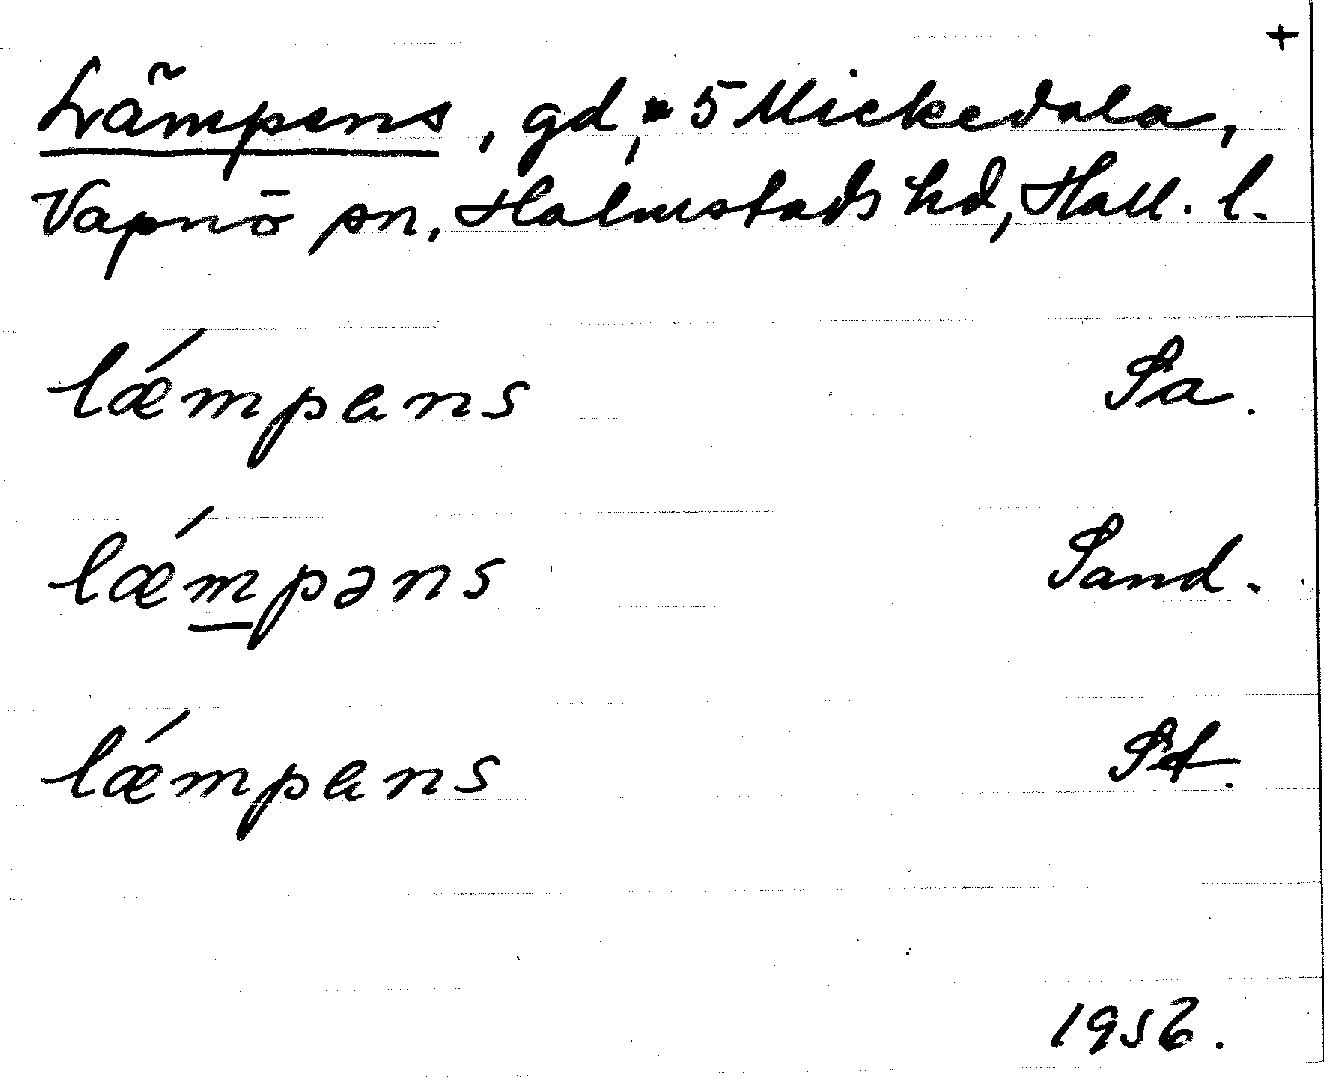 +
Lämpens, gd, 5 Mickedala,
Vapnö sn, Halmstads hd, Hall. l.
lǽmpens Sa.
lǽmpəns Sand.
lǽmpens St.
1956.